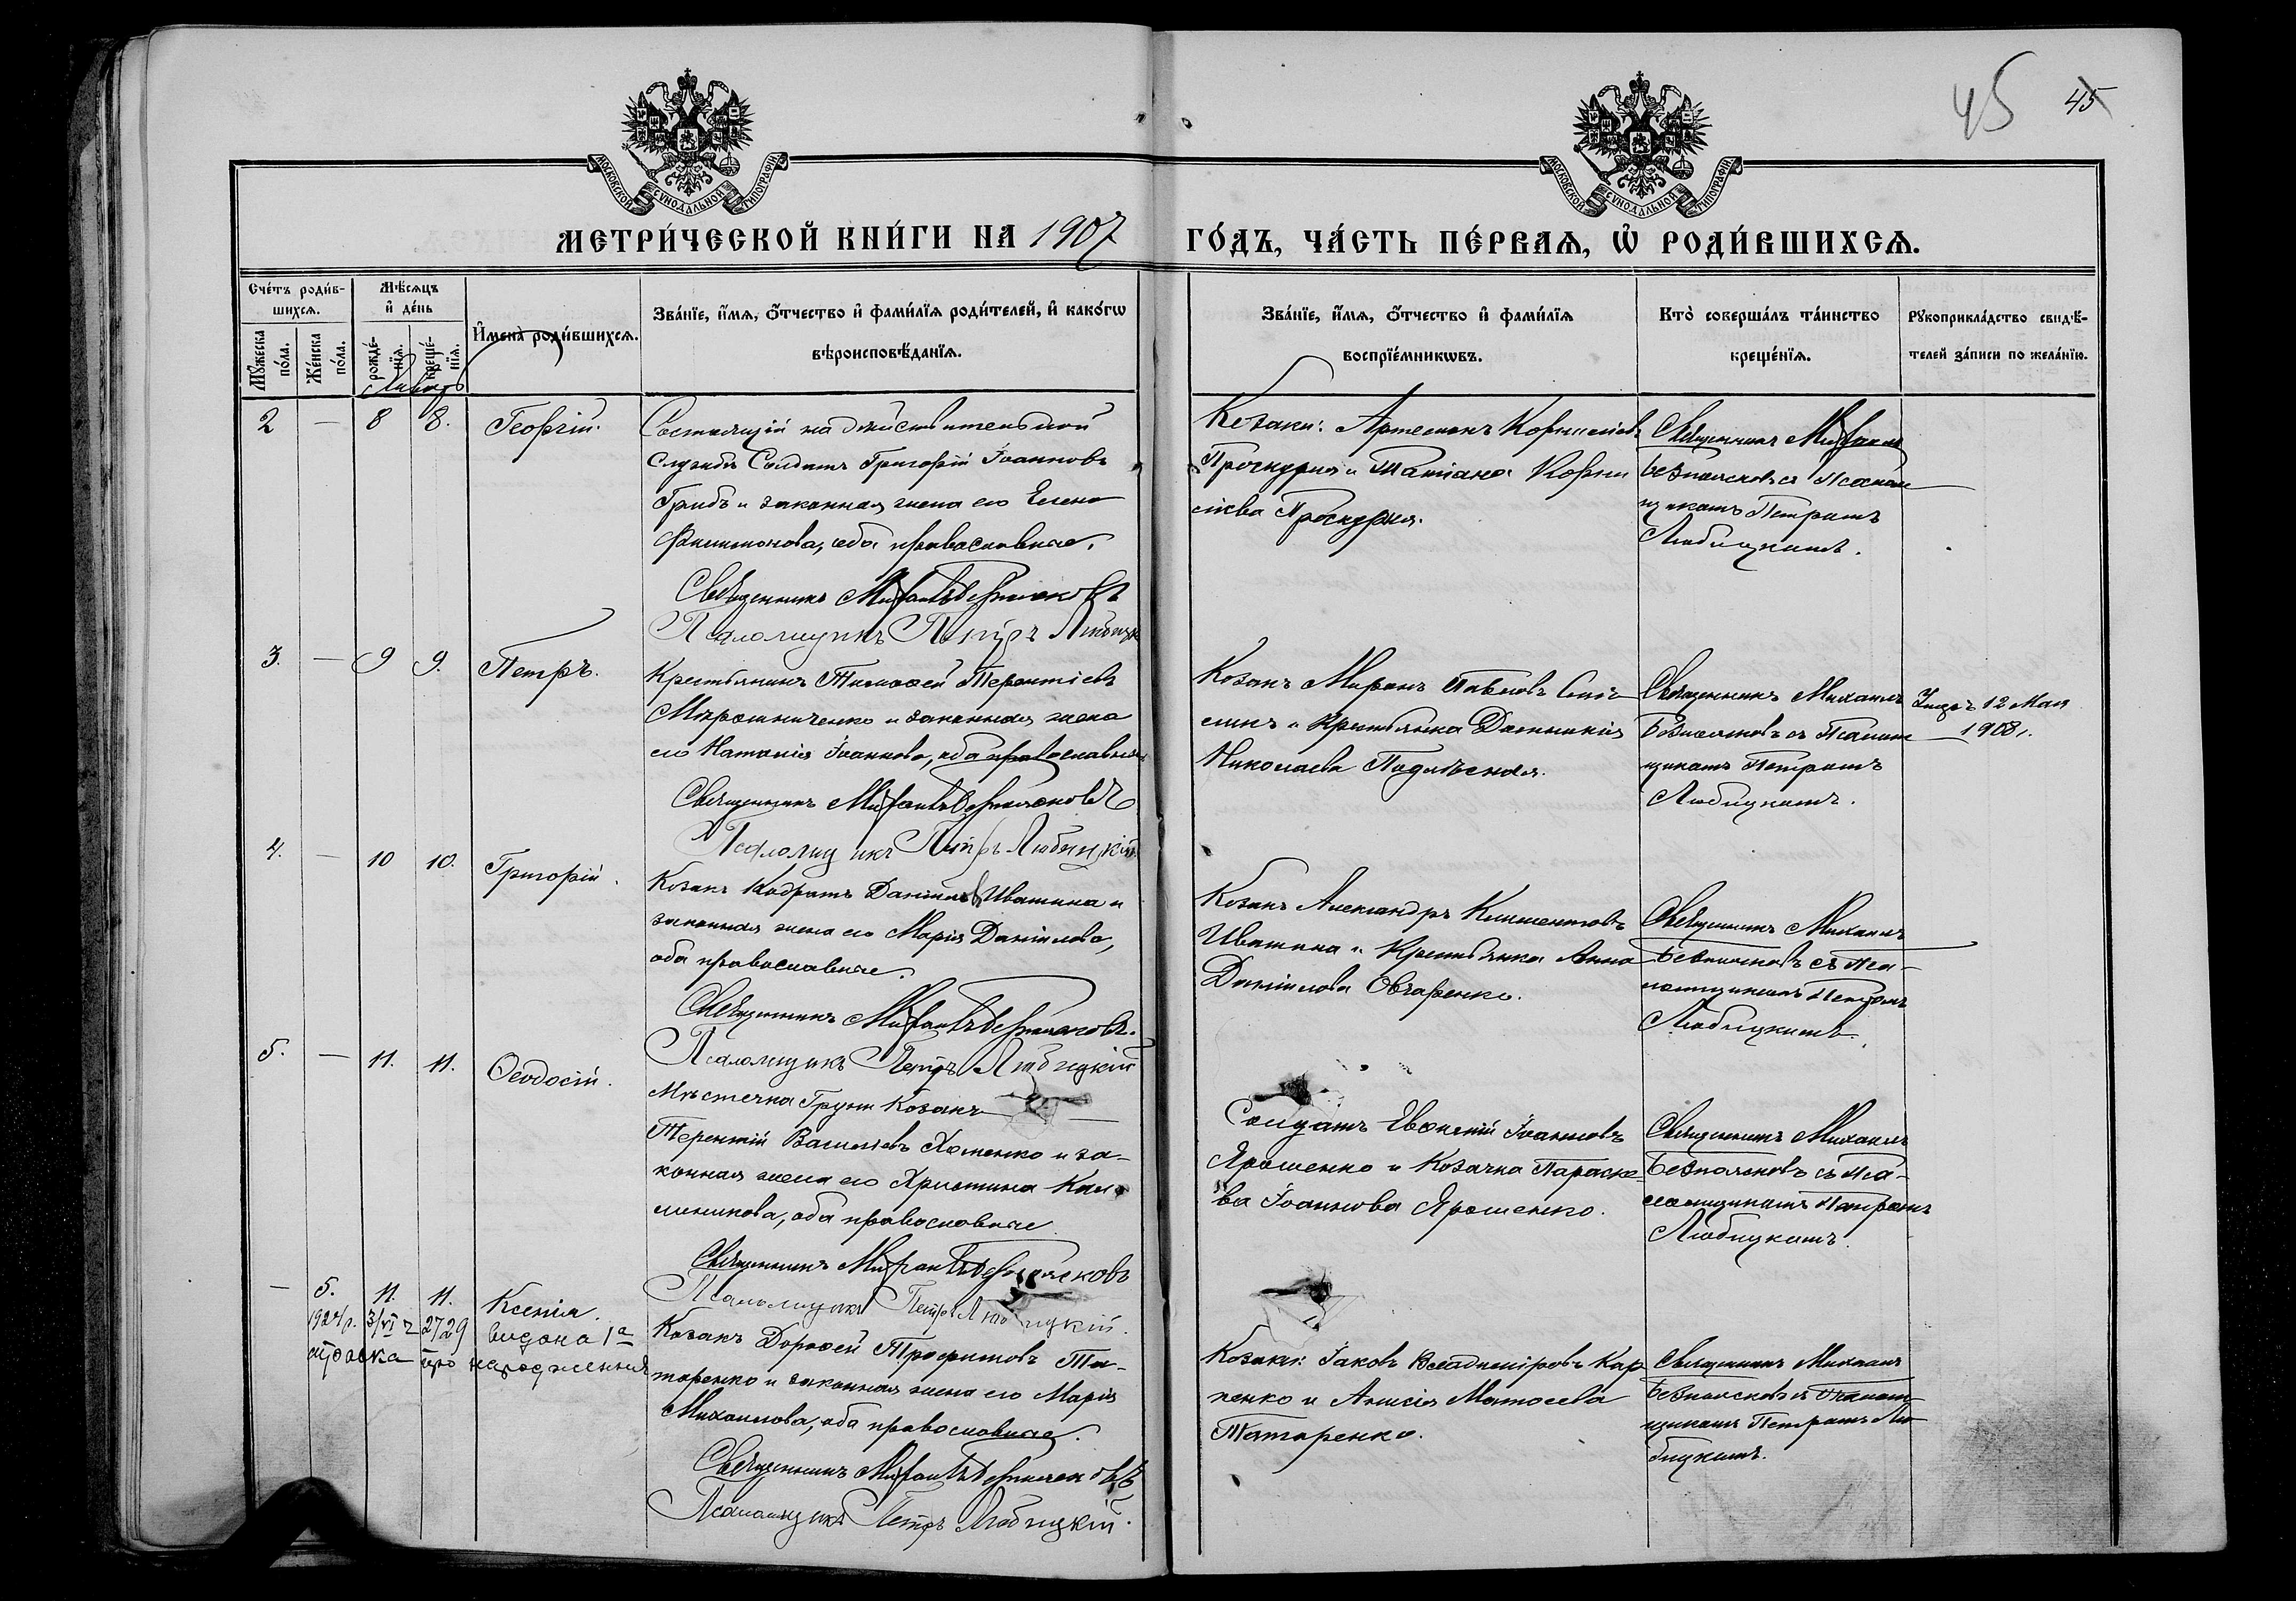 45 45
МОСКОВСКОЙ СѴНОДАЛЬНОЙ ТИПОГРАФІИ
МОСКОВСКОЙ СѴНОДАЛЬНОЙ ТИПОГРАФІИ
МЕТРИ́ЧЕСКОЙ КНИ́ГИ НА 1907 ГО́ДЪ, ЧА́СТЬ ПЕ́РВАѦ, Ѡ҆ РОДИ́ВШИХСѦ.
Сче́тъ роди́в-
шихсѧ.
Мꙋ́жеска по́ла.
Же́нска по́ла.
Мѣ́сѧцъ
и҆ де́нь
рожде́-
нїѧ.
креще́-
нїѧ.
И҆мена̀ роди́вшихсѧ.
Зва́нїе, и҆́мѧ, ѻ҆́тчество и҆ фами́лїѧ роди́телей, и҆ како́гѡ
вѣроисповѣ́данїѧ.
Зва́нїе, и҆́мѧ, ѻ҆́тчество и҆ фами́лїѧ
воспрїе́мникѡвъ.
Кто̀ соверша́лъ та́инство
креще́нїѧ.
Рꙋкоприкла́дство свидѣ́-
телей за́писи по жела́нїю.
Январь
2 — 8 8. Георгій.
Состоящій на дѣйствительной
службѣ Солдатъ Григорій Іоанновъ
Грибъ и законная жена его Елена
Филимонова, оба православные.
Священникъ Михаилъ Безпалковъ
Псаломщикъ Петръ Любицк
Козаки: Артемонъ Корниліевъ
Проскурня и Татіана Корни
ліева Проскурня.
Священникъ Михаилъ
Безпалковъ съ Псалом
щикомъ Петромъ
Любицкимъ.
3. — 9 9. Петръ.
Крестьянинъ Тимофей Терентіевъ
Мирошниченко и законная жена
его Наталія Іоаннова, оба православные
Священникъ Михаилъ Безпалковъ
Псаломщикъ Петръ Любицкій
Козакъ Миронъ Павловъ
и Крестьянка Домникія
Николаева Подлѣсная.
Священникъ Михаилъ
Безпалковъ съ Псалом
щикомъ Петромъ
Любицкимъ.
12 Мая
1908 г.
4. — 10 10. Григорій.
Козакъ Кодратъ Даніиловъ Ивашина и
законная жена его Марія Даніилова,
оба православные.
Священникъ Михаилъ Безпалковъ.
Псаломщикъ Петръ Любицкій
Козакъ Александръ Климентовъ
Ивашина и Крестьянка Анна
Даніилова Овчаренко.
Священникъ Михаилъ
Безпалковъ съ Пса-
ломщикомъ Петромъ
Любицкимъ.
5. — 11. 11. Ѳеодосій.
Мѣстечка Груни Козакъ
Терентій Василіевъ Хоменко и за-
конная жена его Христина Кал
линикова, оба православные
Священникъ Михаилъ Безпалковъ
Псаломщикъ Петръ Любицкій.
Солдатъ Іоанновъ
Ярошенко и Козачка Параске
ва Іоаннова Ярошенко.
Священникъ Михаилъ
Безпалковъ съ Пса-
ломщикомъ Петромъ
Любицкимъ.
— 5. 11. 11. Ксенія.
1924 р. 3/VI ч 2729 видана 1а
про народження
Козакъ Дорофей Трофимовъ Та-
таренко и законная жена его Марія
Михаилова, оба православные.
Священникъ Михаилъ Безпалковъ
Псаломщикъ Петръ Любицкій.
Козаки: Іаковъ Владиміровъ Кар
пенко и Анисія Матѳеева
Татаренко.
Священникъ Михаилъ
Безпалковъ съ Псалом
щикомъ Петромъ Лю
бицкимъ.